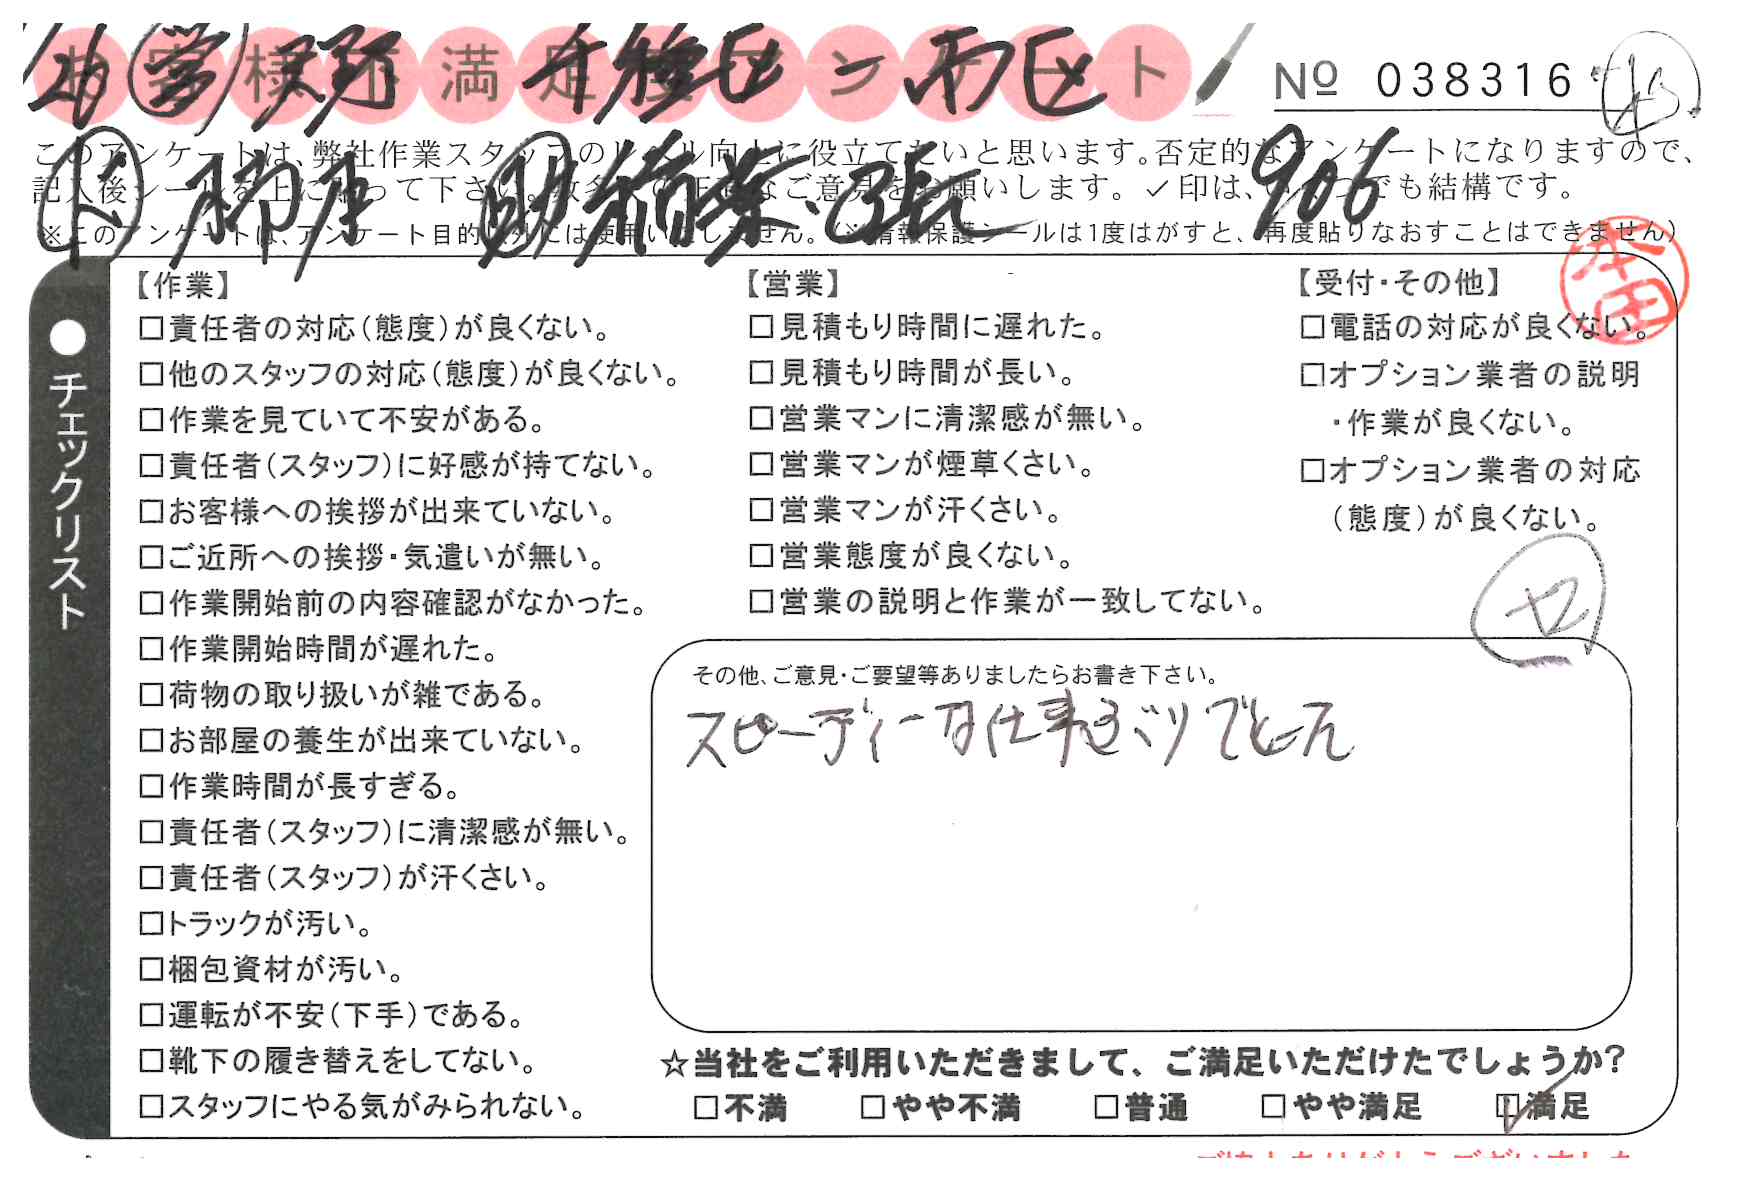 お客様不満足度アンケート
千種区 → 南区
№ 038316
このアンケートは、弊社作業スタッフのレベル向上に役立てたいと思います。否定的なアンケートになりますので、
記入後シールを上に貼って下さい。数多くの正直なご意見をお願いします。✓印は、いくつでも結構です。
906
※このアンケートは、アンケート目的以外には使用いたしません。(※情報保護シールは1度はがすと、再度貼りなおすことはできません)
本田
●チェックリスト
【作業】
□責任者の対応(態度)が良くない。
□他のスタッフの対応(態度)が良くない。
□作業を見ていて不安がある。
□責任者(スタッフ)に好感が持てない。
□お客様への挨拶が出来ていない。
□ご近所への挨拶・気遣いが無い。
□作業開始前の内容確認がなかった。
□作業開始時間が遅れた。
□荷物の取り扱いが雑である。
□お部屋の養生が出来ていない。
□作業時間が長すぎる。
□責任者(スタッフ)に清潔感が無い。
□責任者(スタッフ)が汗くさい。
□トラックが汚い。
□梱包資材が汚い。
□運転が不安(下手)である。
□靴下の履き替えをしてない。
□スタッフにやる気がみられない。
【営業】
□見積もり時間に遅れた。
□見積もり時間が長い。
□営業マンに清潔感が無い。
□営業マンが煙草くさい。
□営業マンが汗くさい。
□営業態度が良くない。
□営業の説明と作業が一致してない。
【受付・その他】
□電話の対応が良くない。
□オプション業者の説明
・作業が良くない。
□オプション業者の対応
(態度)が良くない。
セ
その他、ご意見・ご要望等ありましたらお書き下さい。
スピーディーな仕事ぶり
☆当社をご利用いただきまして、ご満足いただけたでしょうか?
□不満 □やや不満 □普通 □やや満足 ☑満足